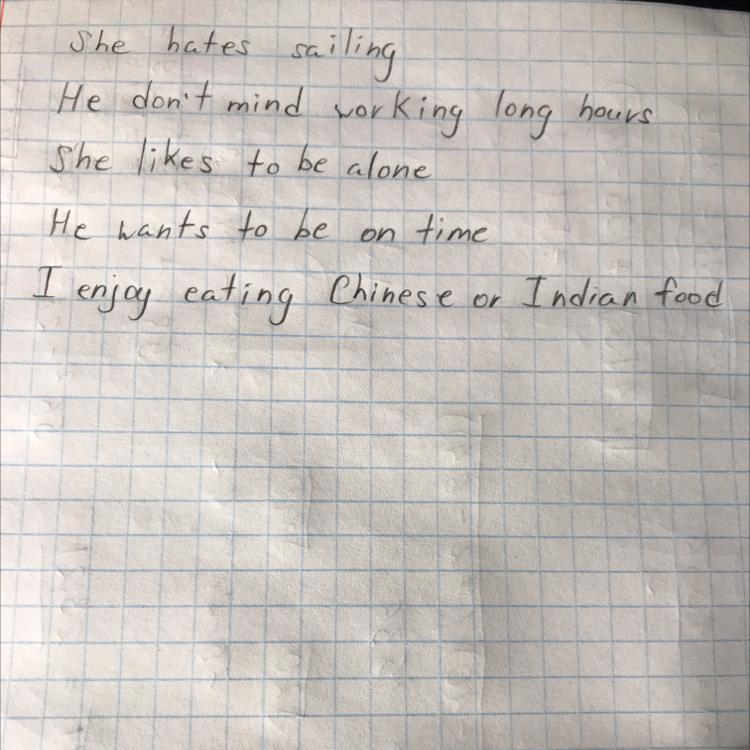 She hates sailing
He don't mind working long hours
She likes to be alone
He wants to be on time
I enjoy eating Chinese or Indian food